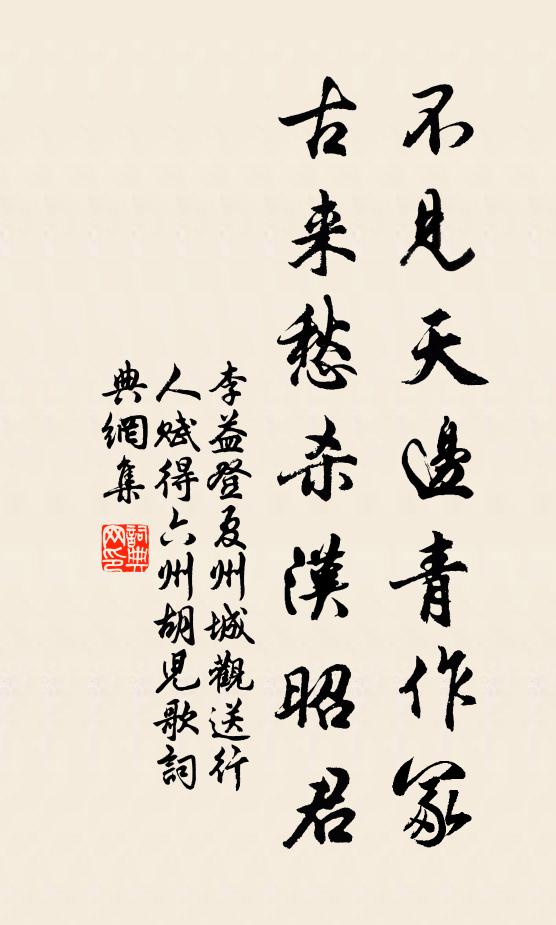 不見天邊青作冢
古来愁杀漢昭君
李益登夏州城觀送行
人赋得六州胡児歌詞
典網集
詞典
网印